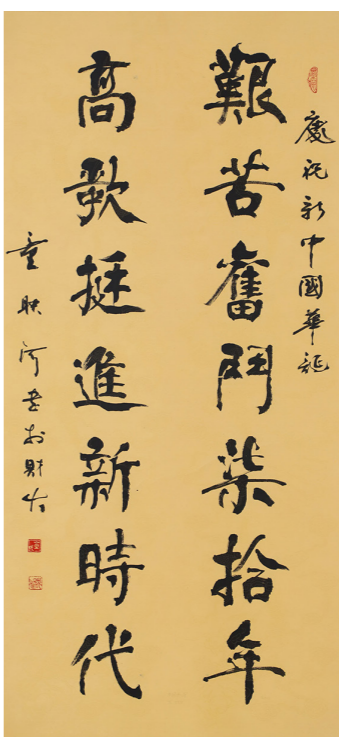 慶祝新中國華誕
艱苦奮鬥柒拾年
高歌挺進新時代
童映河書於財大